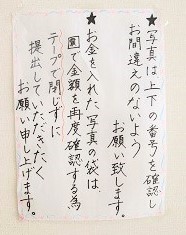 ★写真は上下の番号を確認し
お間違えのないよう
お願い致します。
★お金を入れた写真の袋は、
園で金額を再度確認する為
テープで閉じずに
提出していただきたく
お願い申し上げます。